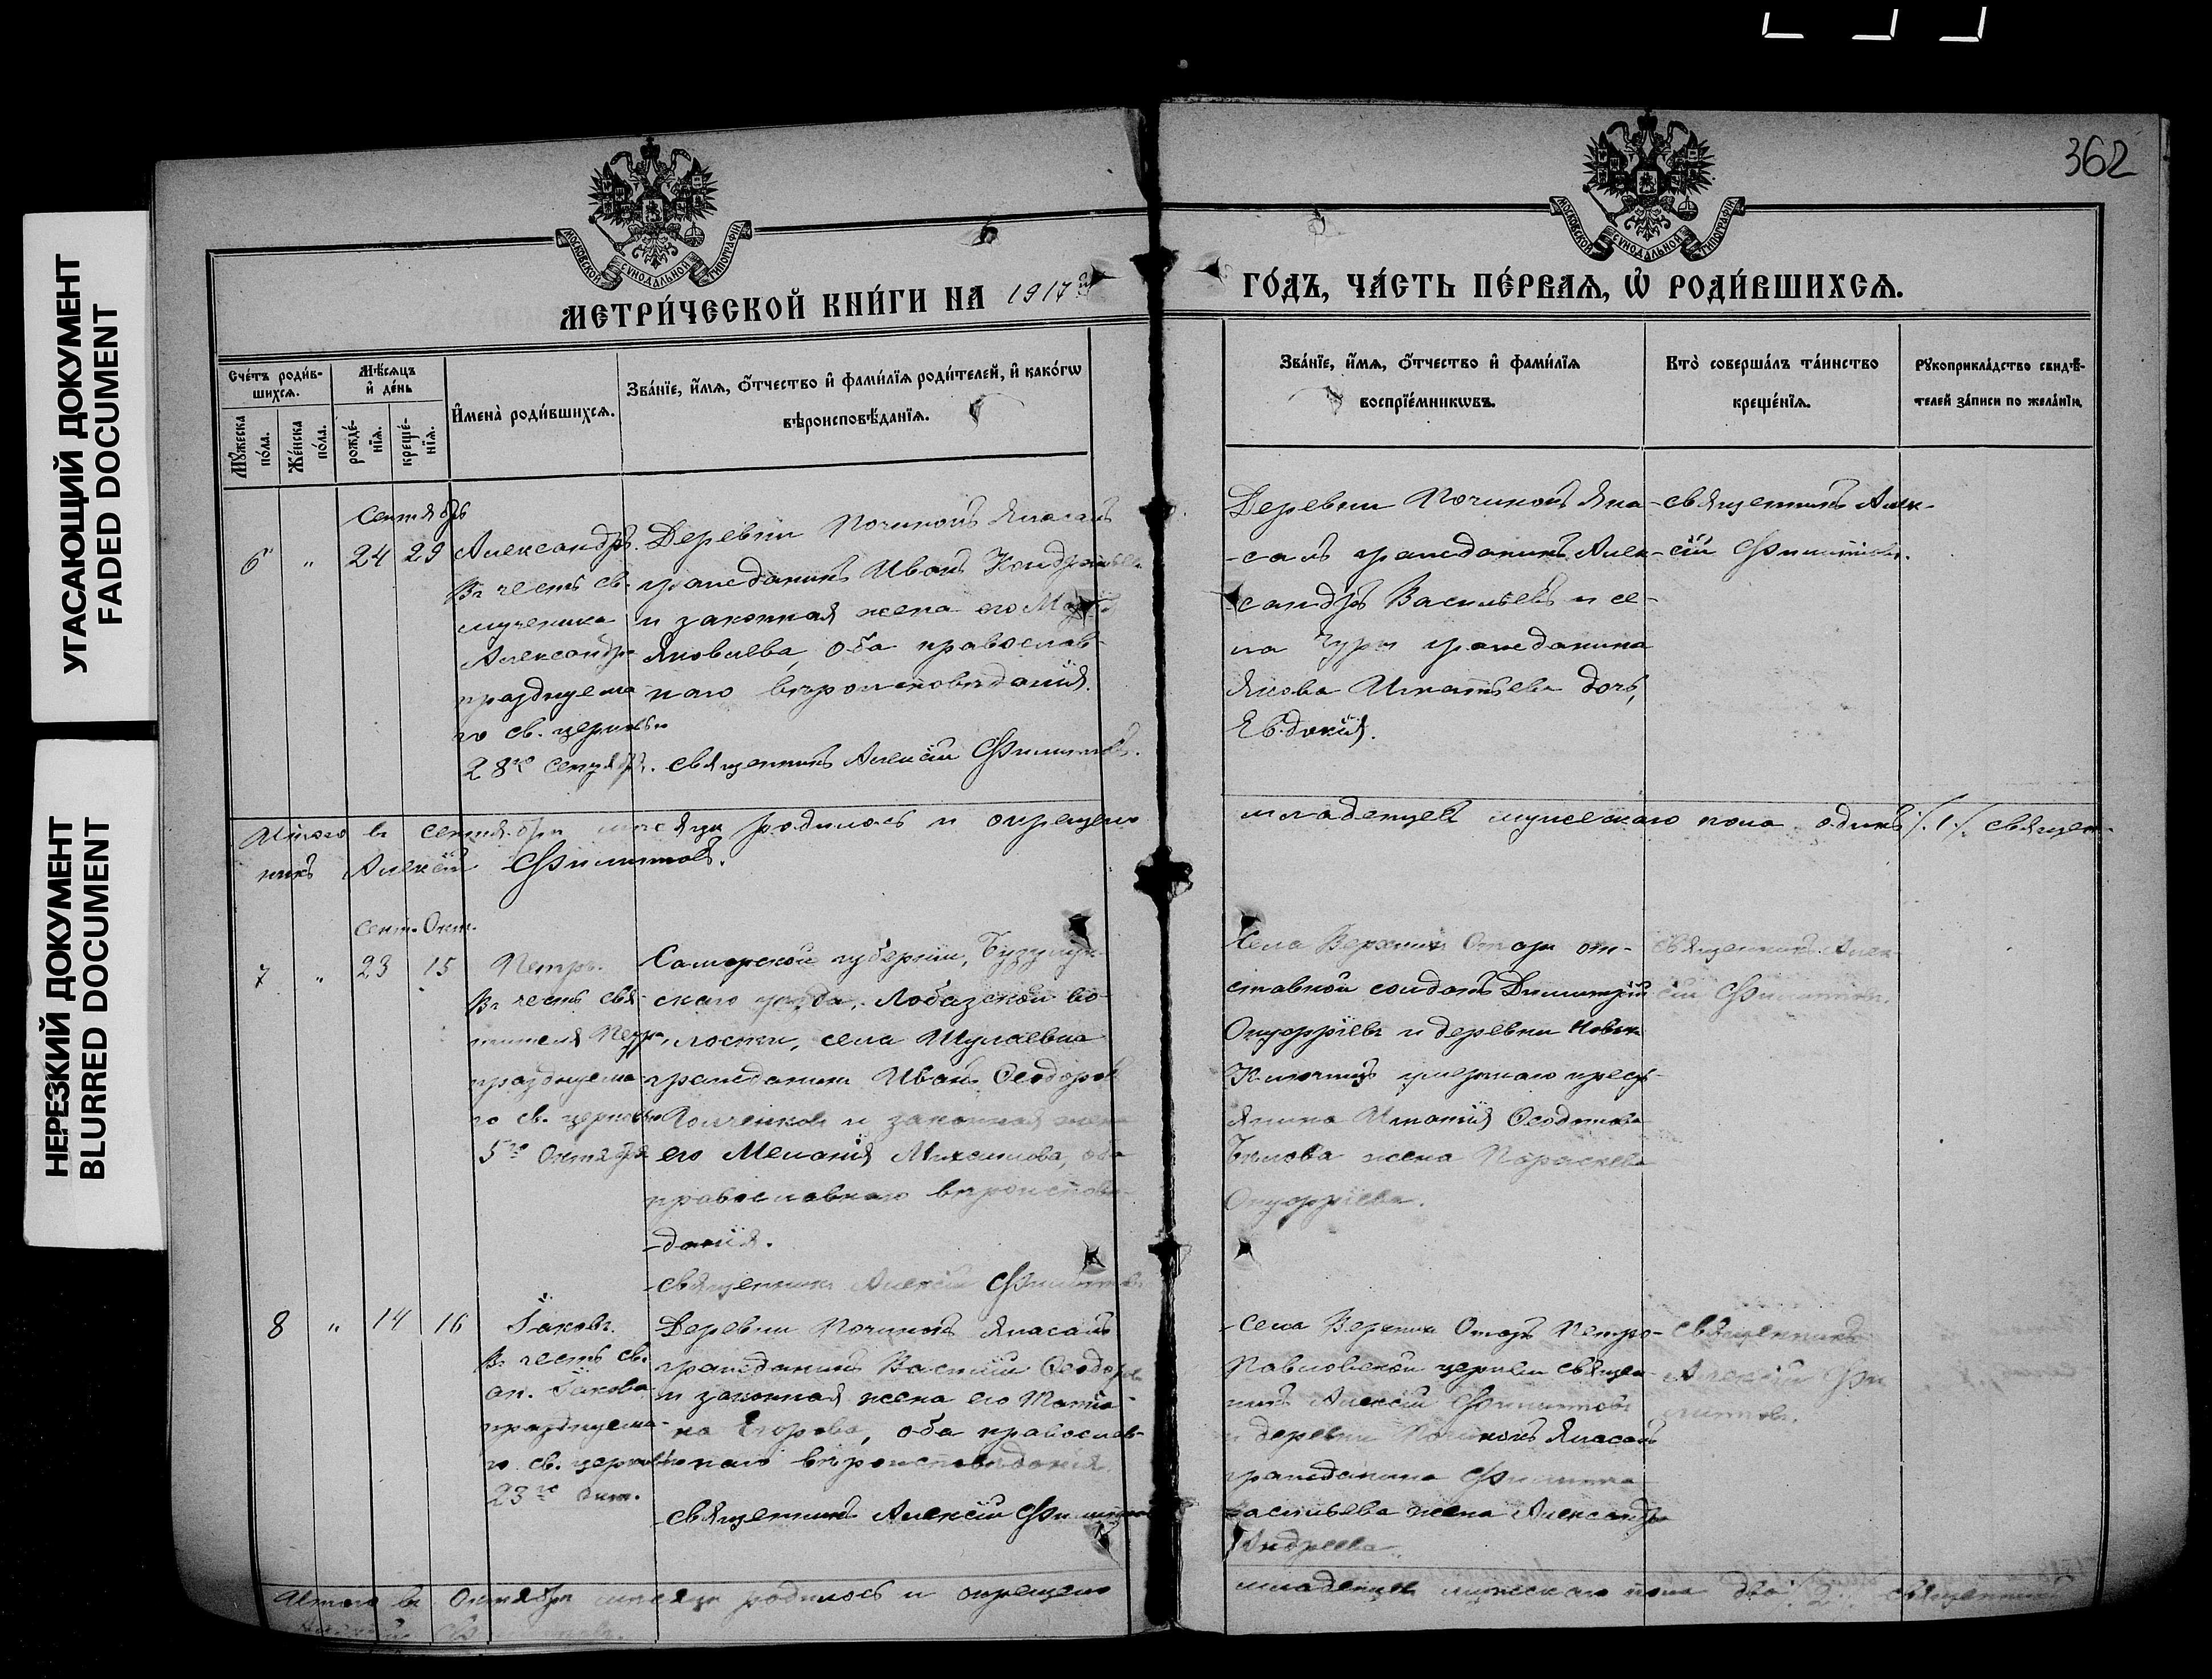 362
УГАСАЮЩИЙ ДОКУМЕНТ
FADED DOCUMENT
НЕРЕЗКИЙ ДОКУМЕНТ
BLURRED DOCUMENT
МОСКОВСКОЙ СѴНОДАЛЬНОЙ ТИПОГРАФІИ
МОСКОВСКОЙ СѴНОДАЛЬНОЙ ТИПОГРАФІИ
МЕТРИ́ЧЕСКОЙ КНИ́ГИ НА 1917й
ГО́ДЪ, ЧА́СТЬ ПЕ́РВАѦ, Ѡ҆ РОДИ́ВШИХСѦ.
Сче́тъ роди́в-
шихсѧ.
Мꙋ́жеска по́ла.
Же́нска по́ла.
Мѣ́сѧцъ
и҆ де́нь
рожде́-нїѧ.
креще́-нїѧ.
И҆мена̀ роди́вшихсѧ.
Зва́нїе, и҆́мѧ, ѻ҆́тчество и҆ фамѝлїѧ роди́телей, и҆ како́гѡ
вѣроисповѣ́данїѧ.
Зва́нїе, и҆́мѧ, ѻ҆́тчество и҆ фами́лїѧ
воспрїе́мникѡвъ.
Кто̀ соверша́лъ та́инство
креще́нїѧ.
Рꙋкоприкла́дство свидѣ́-
телей за́писи по жела́нїю.
Сентябрь
6 " 24 29 Александръ.
Въ честь св.
мученика
Александра
празднуема-
го св. церковью
28го Сентября.
Деревни Починокъ Янасалъ
гражданинъ Иванъ Кондратьевъ
и законная жена его
Яковлева, оба православ-
наго вѣроисповѣданія.
Священникъ Алексій Филипповъ.
Деревни Починокъ Яна-
-салъ гражданинъ Алек-
сандръ Васильевъ и се-
ла Чуры гражданина
Якова Игнатьева дочь,
Евдокія.
Священникъ Алек-
сій Филипповъ.
Итого въ сентябрѣ мѣсяцѣ родилось и окрещено
младенцевъ мужескаго пола одинъ /.1./. Священ-
никъ Алексій Филипповъ.
Сент. Окт.
7 " 23 15 Петръ.
Въ честь свя-
тителя Петра
празднуема-
го св. церковью
5го Октября
Самарской губерніи, Бузулук-
скаго уѣзда, Лобазской во-
лости, села Шулаевка
гражданинъ Иванъ Ѳеодоровъ
и законная жена
его Меланія Михаилова, оба
православнаго вѣроисповѣ-
-данія.
Священникъ Алексій Филипповъ
Села Верхнихъ Отаръ от-
ставной солдатъ Димитрій
Онуфріевъ и деревни Новыя
Ключищъ умершаго кресть-
янина Игнатія Ѳеодотова
Бѣлова жена Параскева
Онуфріева.
Священникъ Алек-
сій Филипповъ.
8 " 14 16 Іаковъ.
Въ честь св.
ап. Іакова
празднуема-
го св. церковью
23го окт.
Деревни Починокъ Янасалъ
гражданинъ Василій Ѳеодоровъ
и законная жена его Татіа-
на Егорова, оба православ-
наго вѣроисповѣданія.
Священникъ Алексій Филипповъ
Села Верхнихъ Отаръ Петро-
Павловской церкви священ-
никъ Алексій Филипповъ
и деревни Починокъ Янасалъ
гражданина Филиппа
Васильева жена Александра
Андреева.
Священникъ
Алексій Фи-
липповъ.
Итого въ Октябрѣ мѣсяцѣ родилось и окрещено
младенцевъ мужескаго пола два /.2./. Священникъ
Алексій Филипповъ.